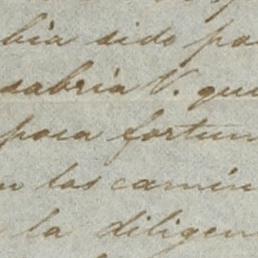 bia sido pa
sabria V. que
poca fortun
n los camin
la diligen